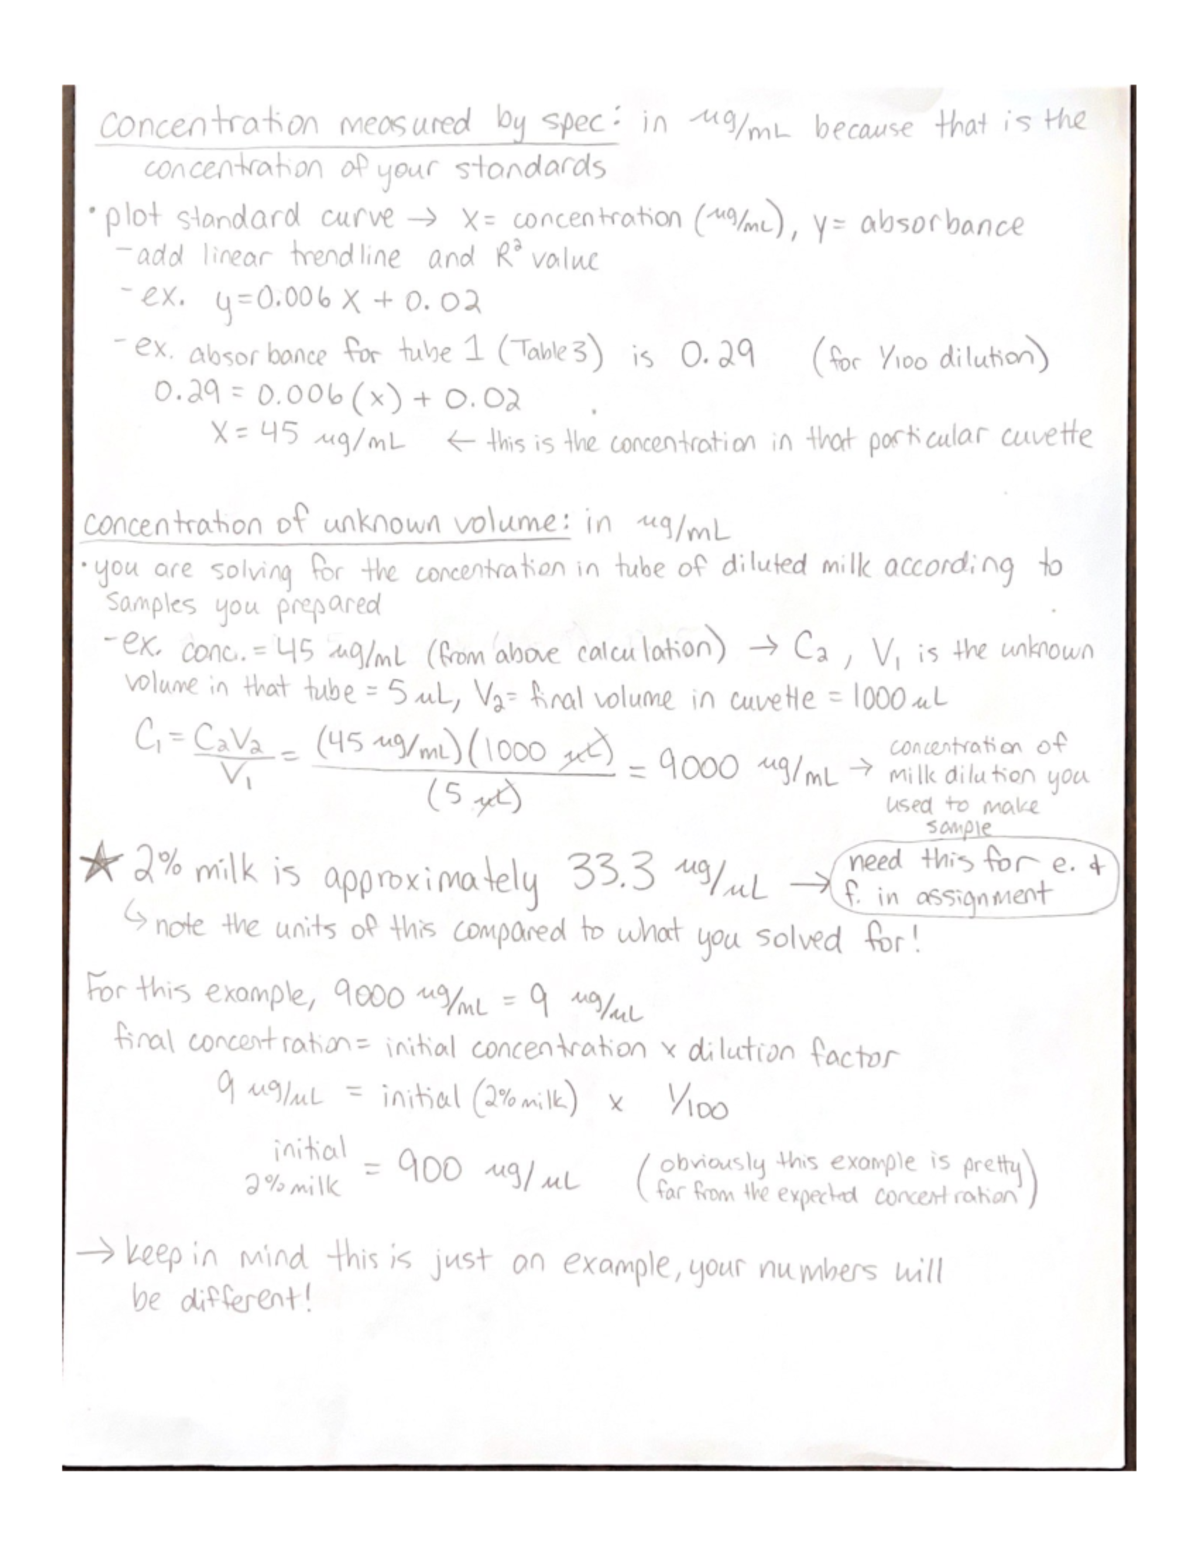 Concentration measured by spec: in ug/mL because that is the
concentration of your standards
• plot standard curve → X= concentration (ug/mL), y= absorbance
- add linear trendline and R² value
- ex. y=0.006 X + 0.02
- ex. absorbance for tube 1 (Table 3) is 0.29 (for 1/100 dilution)
0.29 = 0.006 (x) + 0.02
X= 45 ug/mL ← this is the concentration in that particular cuvette
concentration of unknown volume: in ug/mL
• you are solving for the concentration in tube of diluted milk according to
samples you prepared
- ex. conc. = 45 ug/mL (from above calculation) → C₂, V₁ is the unknown
volume in that tube = 5 uL, V₂= final volume in cuvette = 1000 uL
C₁ = C₂V₂/V₁ = (45 ug/mL)(1000 uL)/(5 uL) = 9000 ug/mL → concentration of
milk dilution you
used to make
sample
★ 2% milk is approximately 33.3 ug/uL → need this for e. &
f. in assignment
↳ note the units of this compared to what you solved for!
For this example, 9000 ug/mL = 9 ug/uL
final concentration = initial concentration x dilution factor
9 ug/uL = initial (2% milk) x 1/100
initial
2% milk = 900 ug/uL (obviously this example is pretty
far from the expected concentration)
→ keep in mind this is just an example, your numbers will
be different!